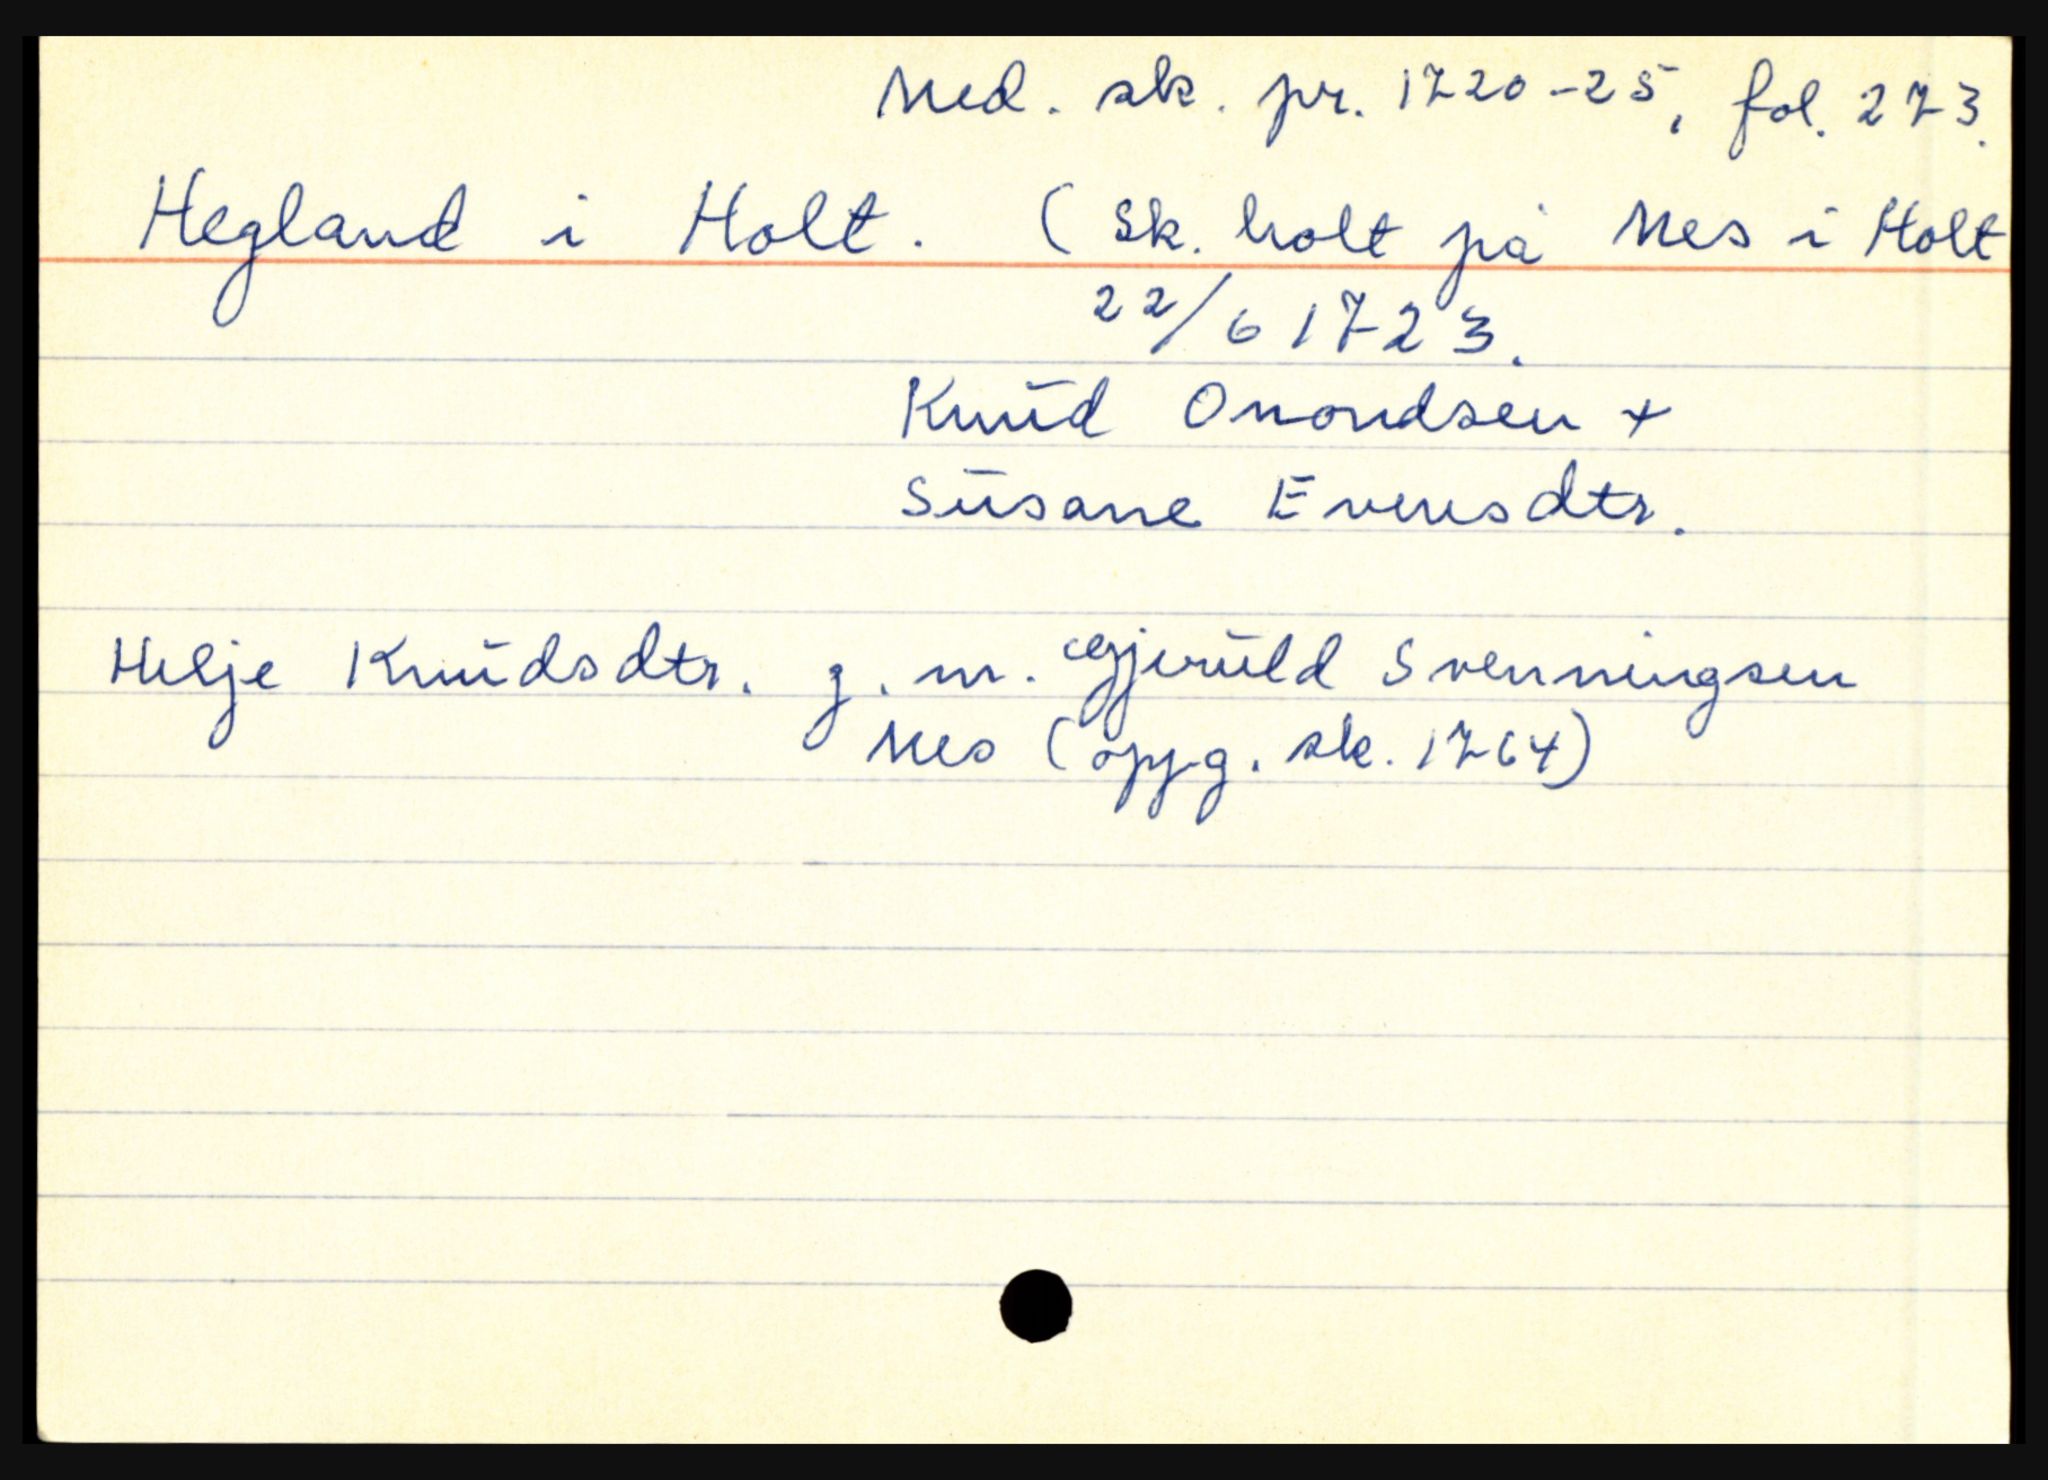 Ned. sk. pr. 1720-25, fol. 273.
Hegland i Holt. (Sk. holt på Nes i Holt
22/6 1723.
Knud Omondsen +
Susane Evensdtr.
Helje Knudsdtr. g. m. Gjeruld Svenningsen
Nes (oppg. sk. 1764)